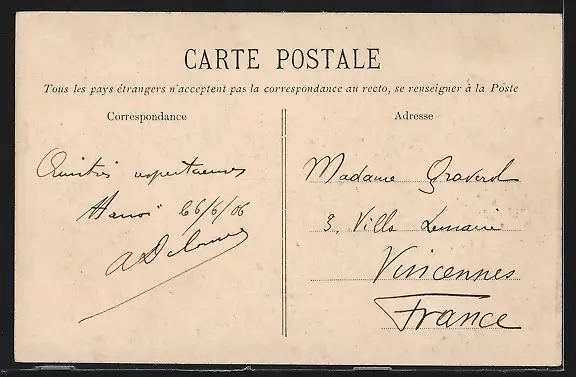 CARTE POSTALE
Tous les pays étrangers n'acceptent pas la correspondance au recto, se renseigner à la Poste
Correspondance
Amitiés respectueuses
Hanoï 26/6/06
Adresse
Madame Graverol
3, Villa Lemaire
Vincennes
France